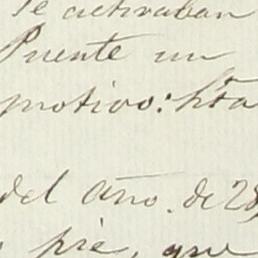 se activaban
Puente un
motivo: hta
del año. de 28
pié, que